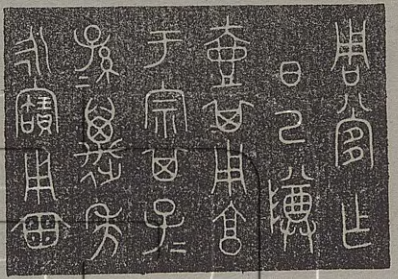 周乍
日己
壺其用享
于宗其子=
孫=萬年
永寶用